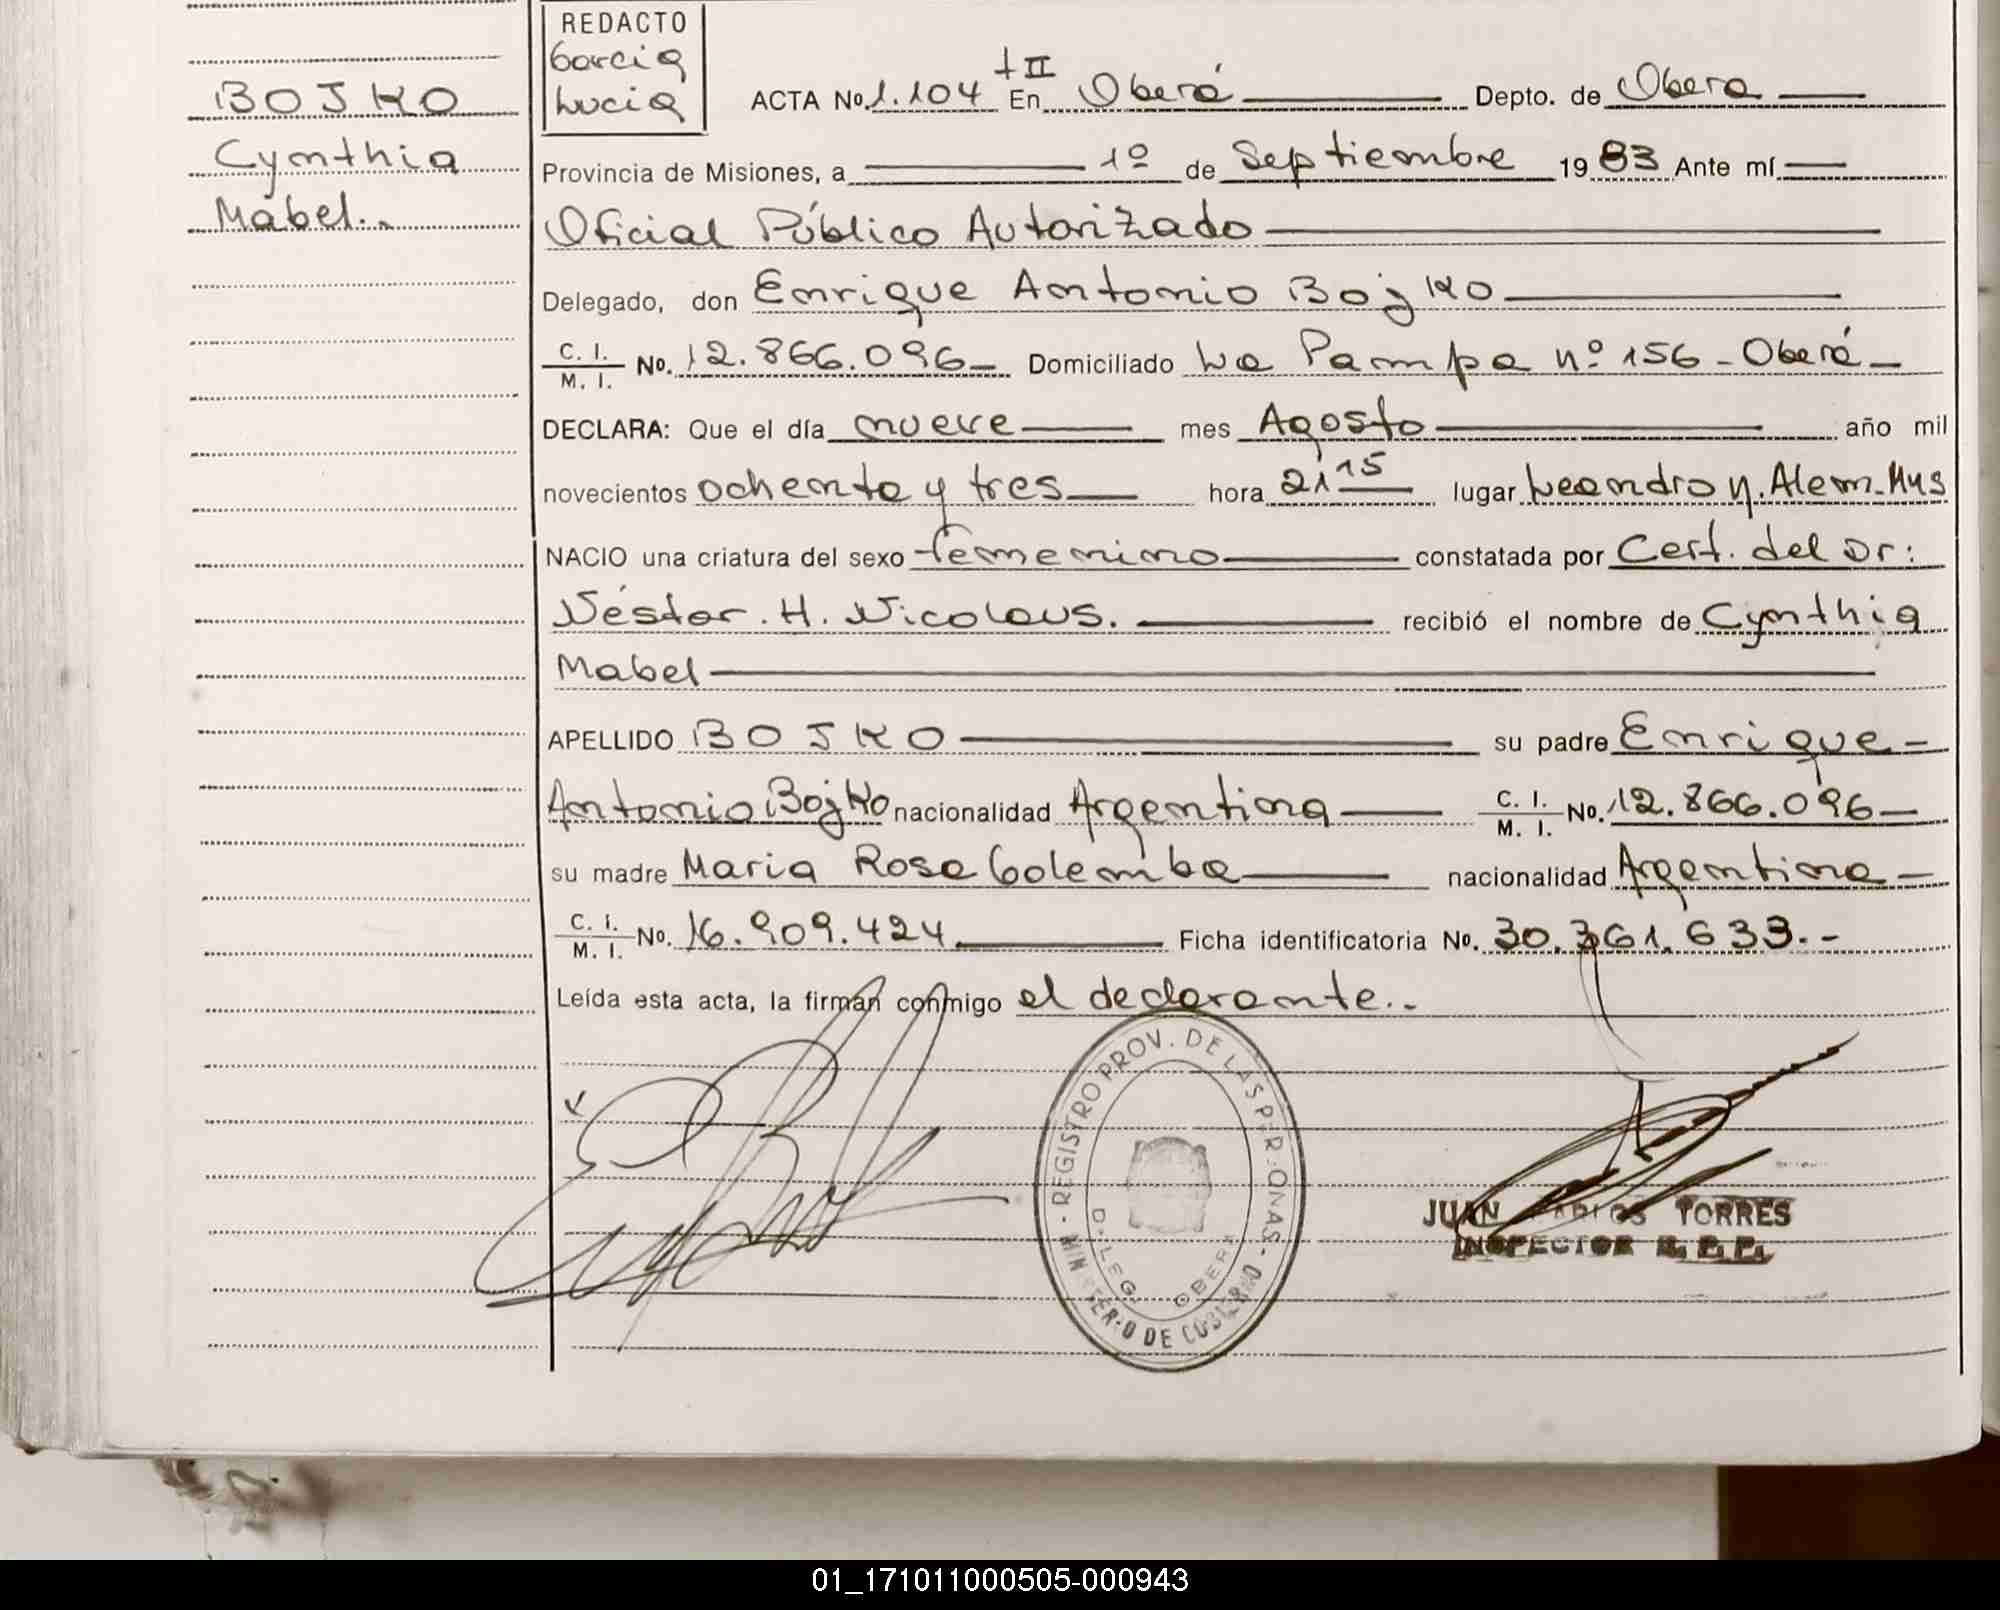 REDACTO
Garcia
Lucia
BOJKO
Cynthia
Mabel.-
ACTA No. 1.104 tII En Oberá Depto. de Obera
Provincia de Misiones, a 1º de Septiembre 1983 Ante mí
Oficial Público Autorizado
Delegado, don Enrique Antonio Bojko
C. I. / M. I. No. 12.866.096- Domiciliado La Pampa nº 156 - Oberá -
DECLARA: Que el día nueve mes Agosto año mil
novecientos ochenta y tres hora 21 15 lugar Leandro N. Alem-Mns
NACIO una criatura del sexo femenino constatada por Cert. del Dr:
Néstor. H. Nicolaus. recibió el nombre de Cynthia
Mabel
APELLIDO BOJKO su padre Enrique -
Antonio Bojko nacionalidad Argentina C. I. / M. I. No. 12.866.096-
su madre Maria Rosa Golemba nacionalidad Argentina -
C. I. / M. I. No. 16.909.424 Ficha identificatoria No. 30.361.633.-
Leída esta acta, la firman conmigo el declarante.-
REGISTRO PROV. DE LAS PERSONAS - MINISTERIO DE GOBIERNO -
DELEG. OBERA
JUAN CARLOS TORRES
INSPECTOR R. P. P.
01_171011000505-000943